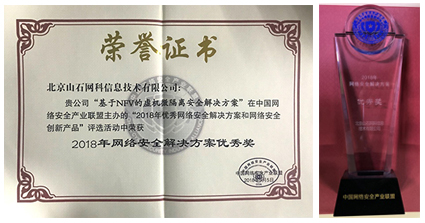 荣誉证书
北京山石网科信息技术有限公司:
贵公司“基于NFV的虚机微隔离安全解决方案”在中国网
络安全产业联盟主办的“2018年优秀网络安全解决方案和网络安全
创新产品”评选活动中荣获
2018年网络安全解决方案优秀奖
中国网络安全产业联盟
2018年
优秀奖
中国网络安全产业联盟